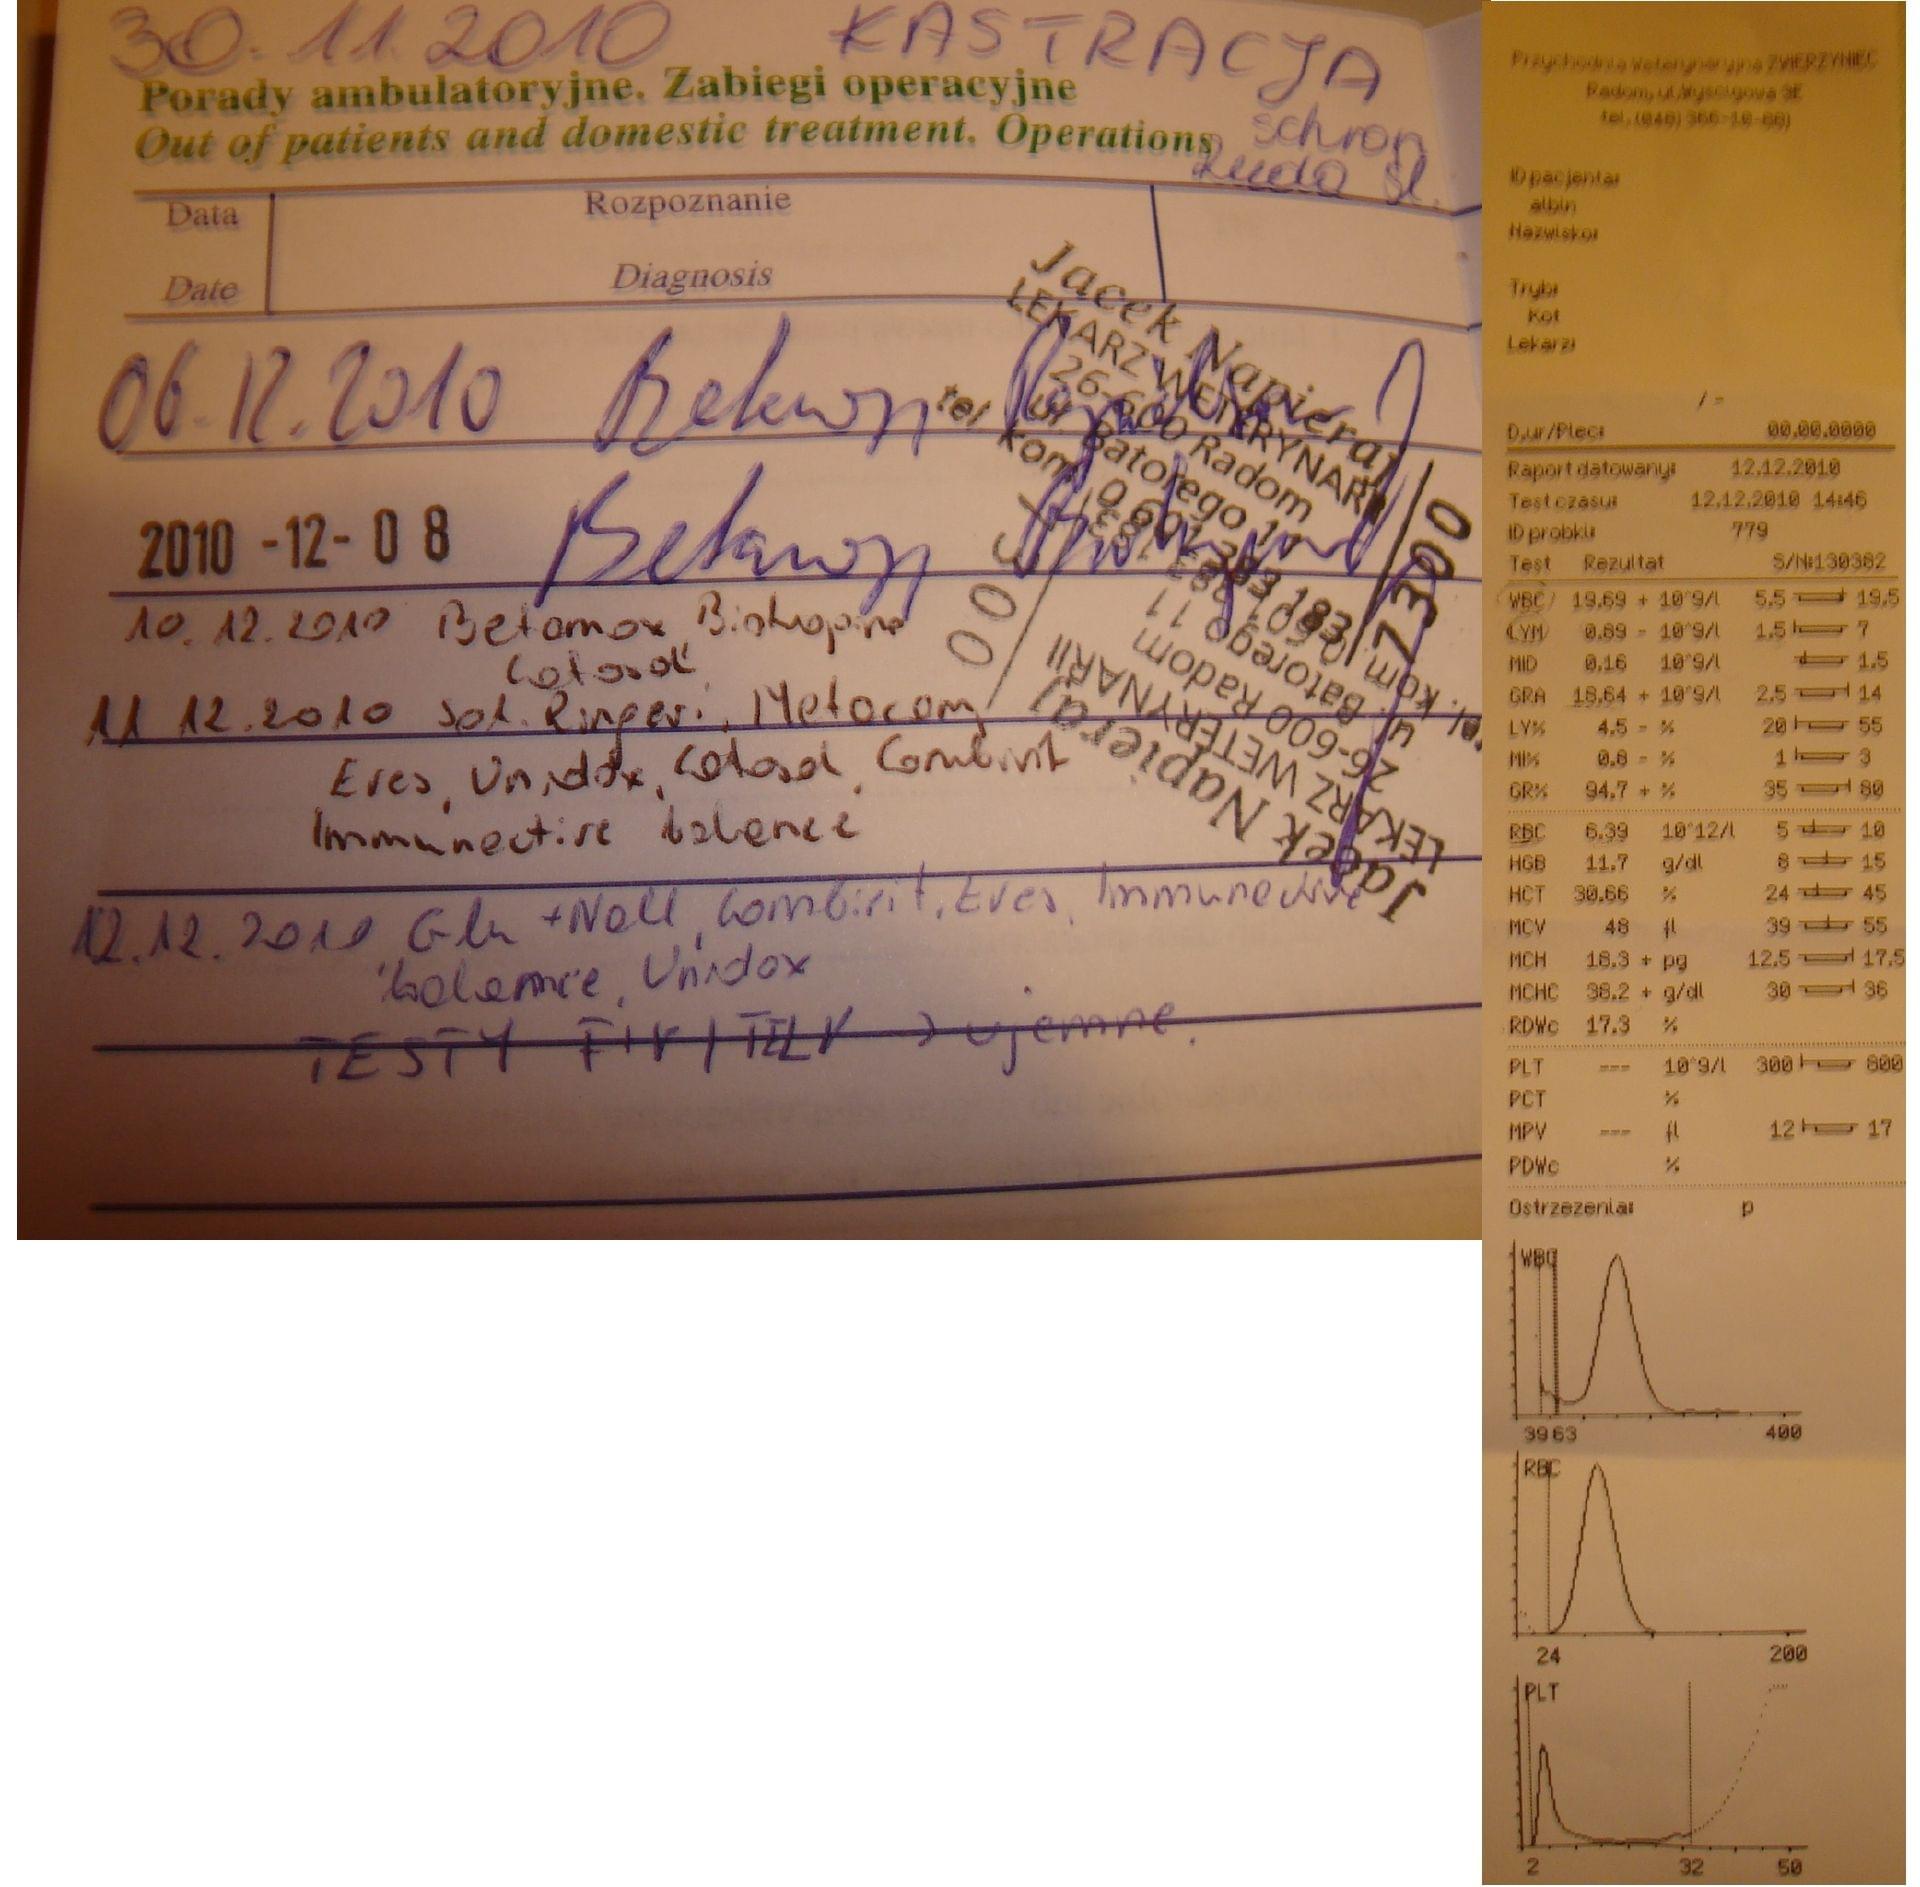 30.11.2010 KASTRACJA
schron
Ruda Śl.
Porady ambulatoryjne. Zabiegi operacyjne
Out of patients and domestic treatment. Operations
Data Rozpoznanie
Date Diagnosis
06.12.2010
2010 -12- 08
10.12.2010 Betamox Biotropina
Catosal
11 12.2010 Sol. Ringeri, Metacam
Eres, Unidox, Catosal, Combivit
Immunactive balance
12.12.2010 Glu + NaCl, Combivit, Eres, Immunactive
balance, Unidox
TESTY FIV / FELV → ujemne.
Jacek Napieraj
LEKARZ WETERYNARII
26-600 Radom
ul. Batorego 11
tel. kom. 0 601 283 183
7300
Jacek Napieraj
LEKARZ WETERYNARII
26-600 Radom
ul. Batorego 11
tel. kom. 0 601 283 183
00
Przychodnia Weterynaryjna ZWIERZYNIEC
Radom, ul.Wyscigowa 3E
tel. (048) 366-10-66)
ID pacjenta:
albin
Nazwisko:
Tryb:
Kot
Lekarz:
/ =
D.ur/Plec: 00.00.0000
Raport datowany: 12.12.2010
Test czasu: 12.12.2010 14:46
ID probki: 779
Test Rezultat S/N:130382
WBC 19.69 + 10^9/l 5.5 19.5
LYM 0.89 - 10^9/l 1.5 7
MID 0.16 10^9/l 1.5
GRA 18.64 + 10^9/l 2.5 14
LY% 4.5 - % 20 55
MI% 0.8 - % 1 3
GR% 94.7 + % 35 80
RBC 6.39 10^12/l 5 10
HGB 11.7 g/dl 8 15
HCT 30.66 % 24 45
MCV 48 fl 39 55
MCH 18.3 + pg 12.5 17.5
MCHC 38.2 + g/dl 30 36
RDWc 17.3 %
PLT --- 10^9/l 300 800
PCT %
MPV --- fl 12 17
PDWc %
Ostrzezenia: p
WBC
39 63 400
RBC
24 200
PLT
2 32 50